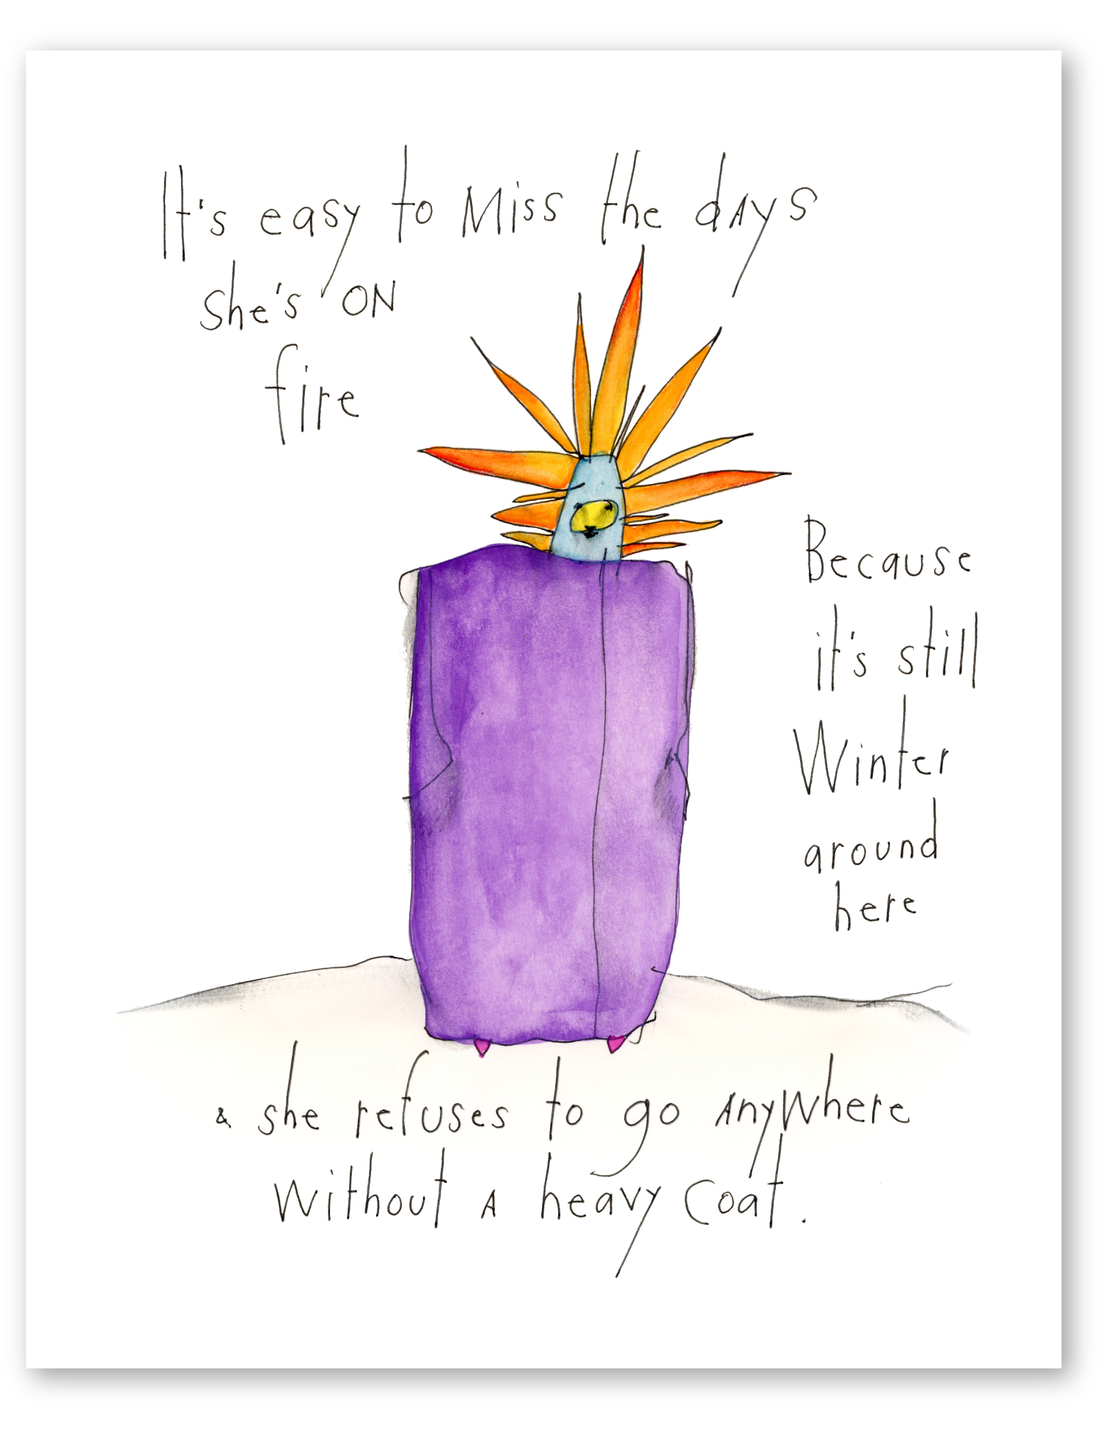 It's easy to Miss the dAys
she's ON
fire
Because
it's still
Winter
around
here
& she refuses to go AnyWhere
without A heavy coat.